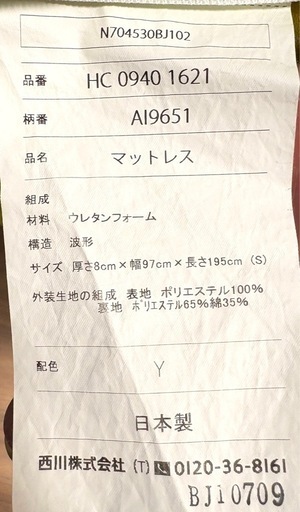 N704530BJ102
品番 HC 0940 1621
柄番 AI9651
品名 マットレス
組成
材料 ウレタンフォーム
構造 波形
サイズ 厚さ8cm×幅97cm×長さ195cm (S)
外装生地の組成 表地 ポリエステル100%
裏地 ポリエステル65%綿35%
配色 Y
日本製
西川株式会社 (T) 0120-36-8161
BJ10709